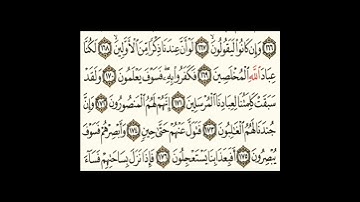 ١٦٦ وَإِن كَانُوا۟ لَيَقُولُونَ ١٦٧ لَوْ أَنَّ عِندَنَا ذِكْرًا مِّنَ ٱلْأَوَّلِينَ ١٦٨ لَكُنَّا
عِبَادَ ٱللَّهِ ٱلْمُخْلَصِينَ ١٦٩ فَكَفَرُوا۟ بِهِۦ فَسَوْفَ يَعْلَمُونَ ١٧٠ وَلَقَدْ
سَبَقَتْ كَلِمَتُنَا لِعِبَادِنَا ٱلْمُرْسَلِينَ ١٧١ إِنَّهُمْ لَهُمُ ٱلْمَنصُورُونَ ١٧٢ وَإِنَّ
جُندَنَا لَهُمُ ٱلْغَٰلِبُونَ ١٧٣ فَتَوَلَّ عَنْهُمْ حَتَّىٰ حِينٍ ١٧٤ وَأَبْصِرْهُمْ فَسَوْفَ
يُبْصِرُونَ ١٧٥ أَفَبِعَذَابِنَا يَسْتَعْجِلُونَ ١٧٦ فَإِذَا نَزَلَ بِسَاحَتِهِمْ فَسَآءَ